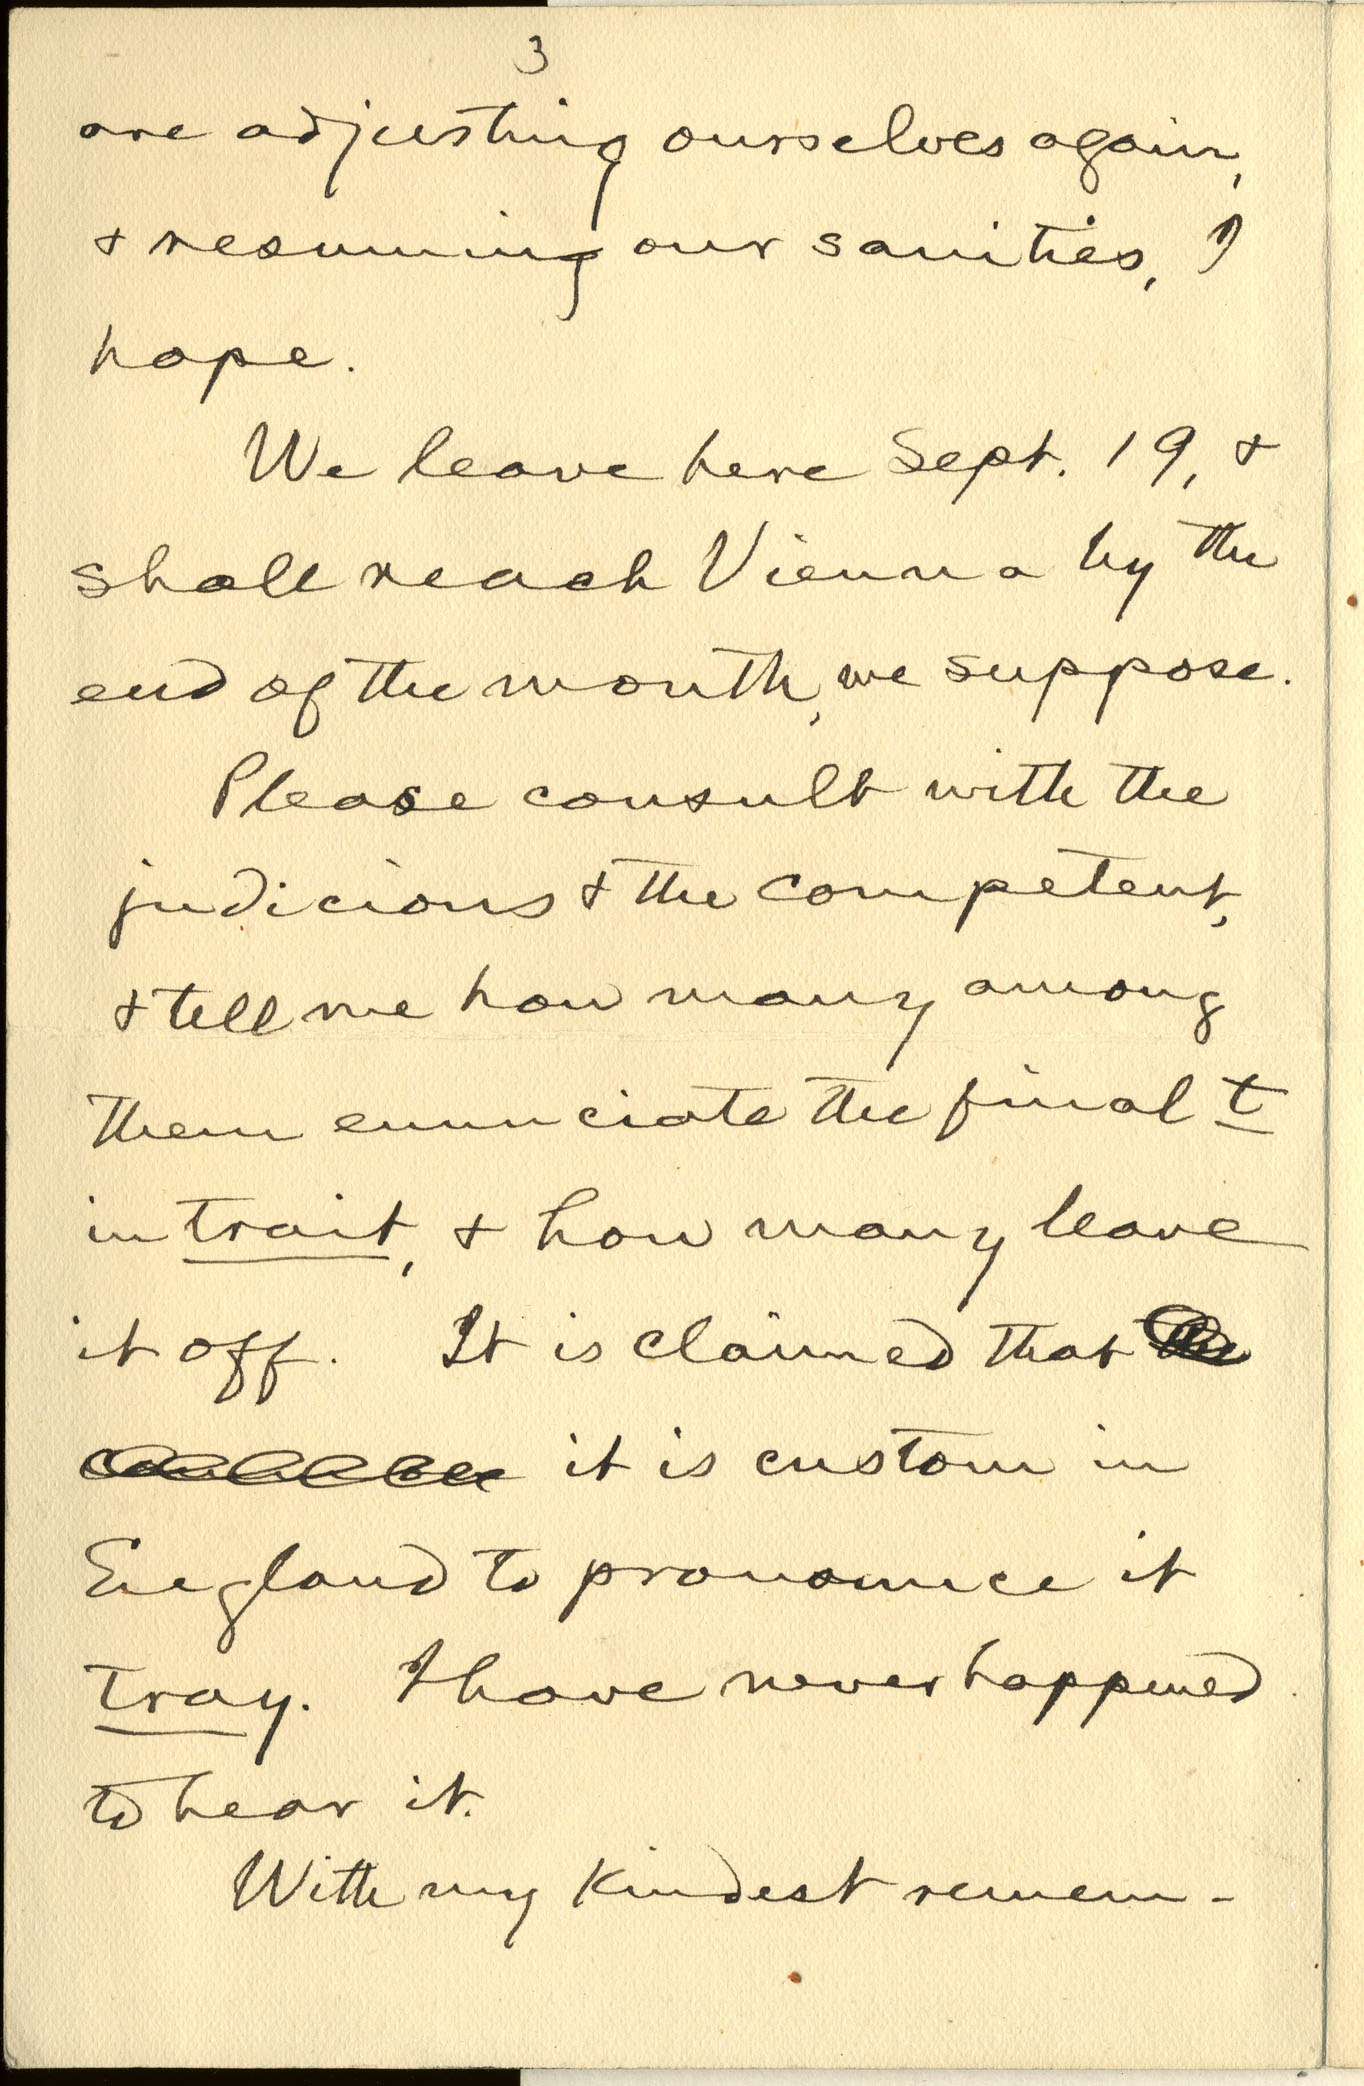 3
are adjusting ourselves again,
& resuming our sanities, I
hope.
We leave here Sept. 19, &
shall reach Vienna by the
end of the month, we suppose.
Please consult with the
judicious & the competent,
& tell me how many among
them enunciate the final t
in trait, & how many leave
it off. It is claimed that
it is custom in
England to pronounce it
tray. I have never happened
to hear it.
With my kindest remem-